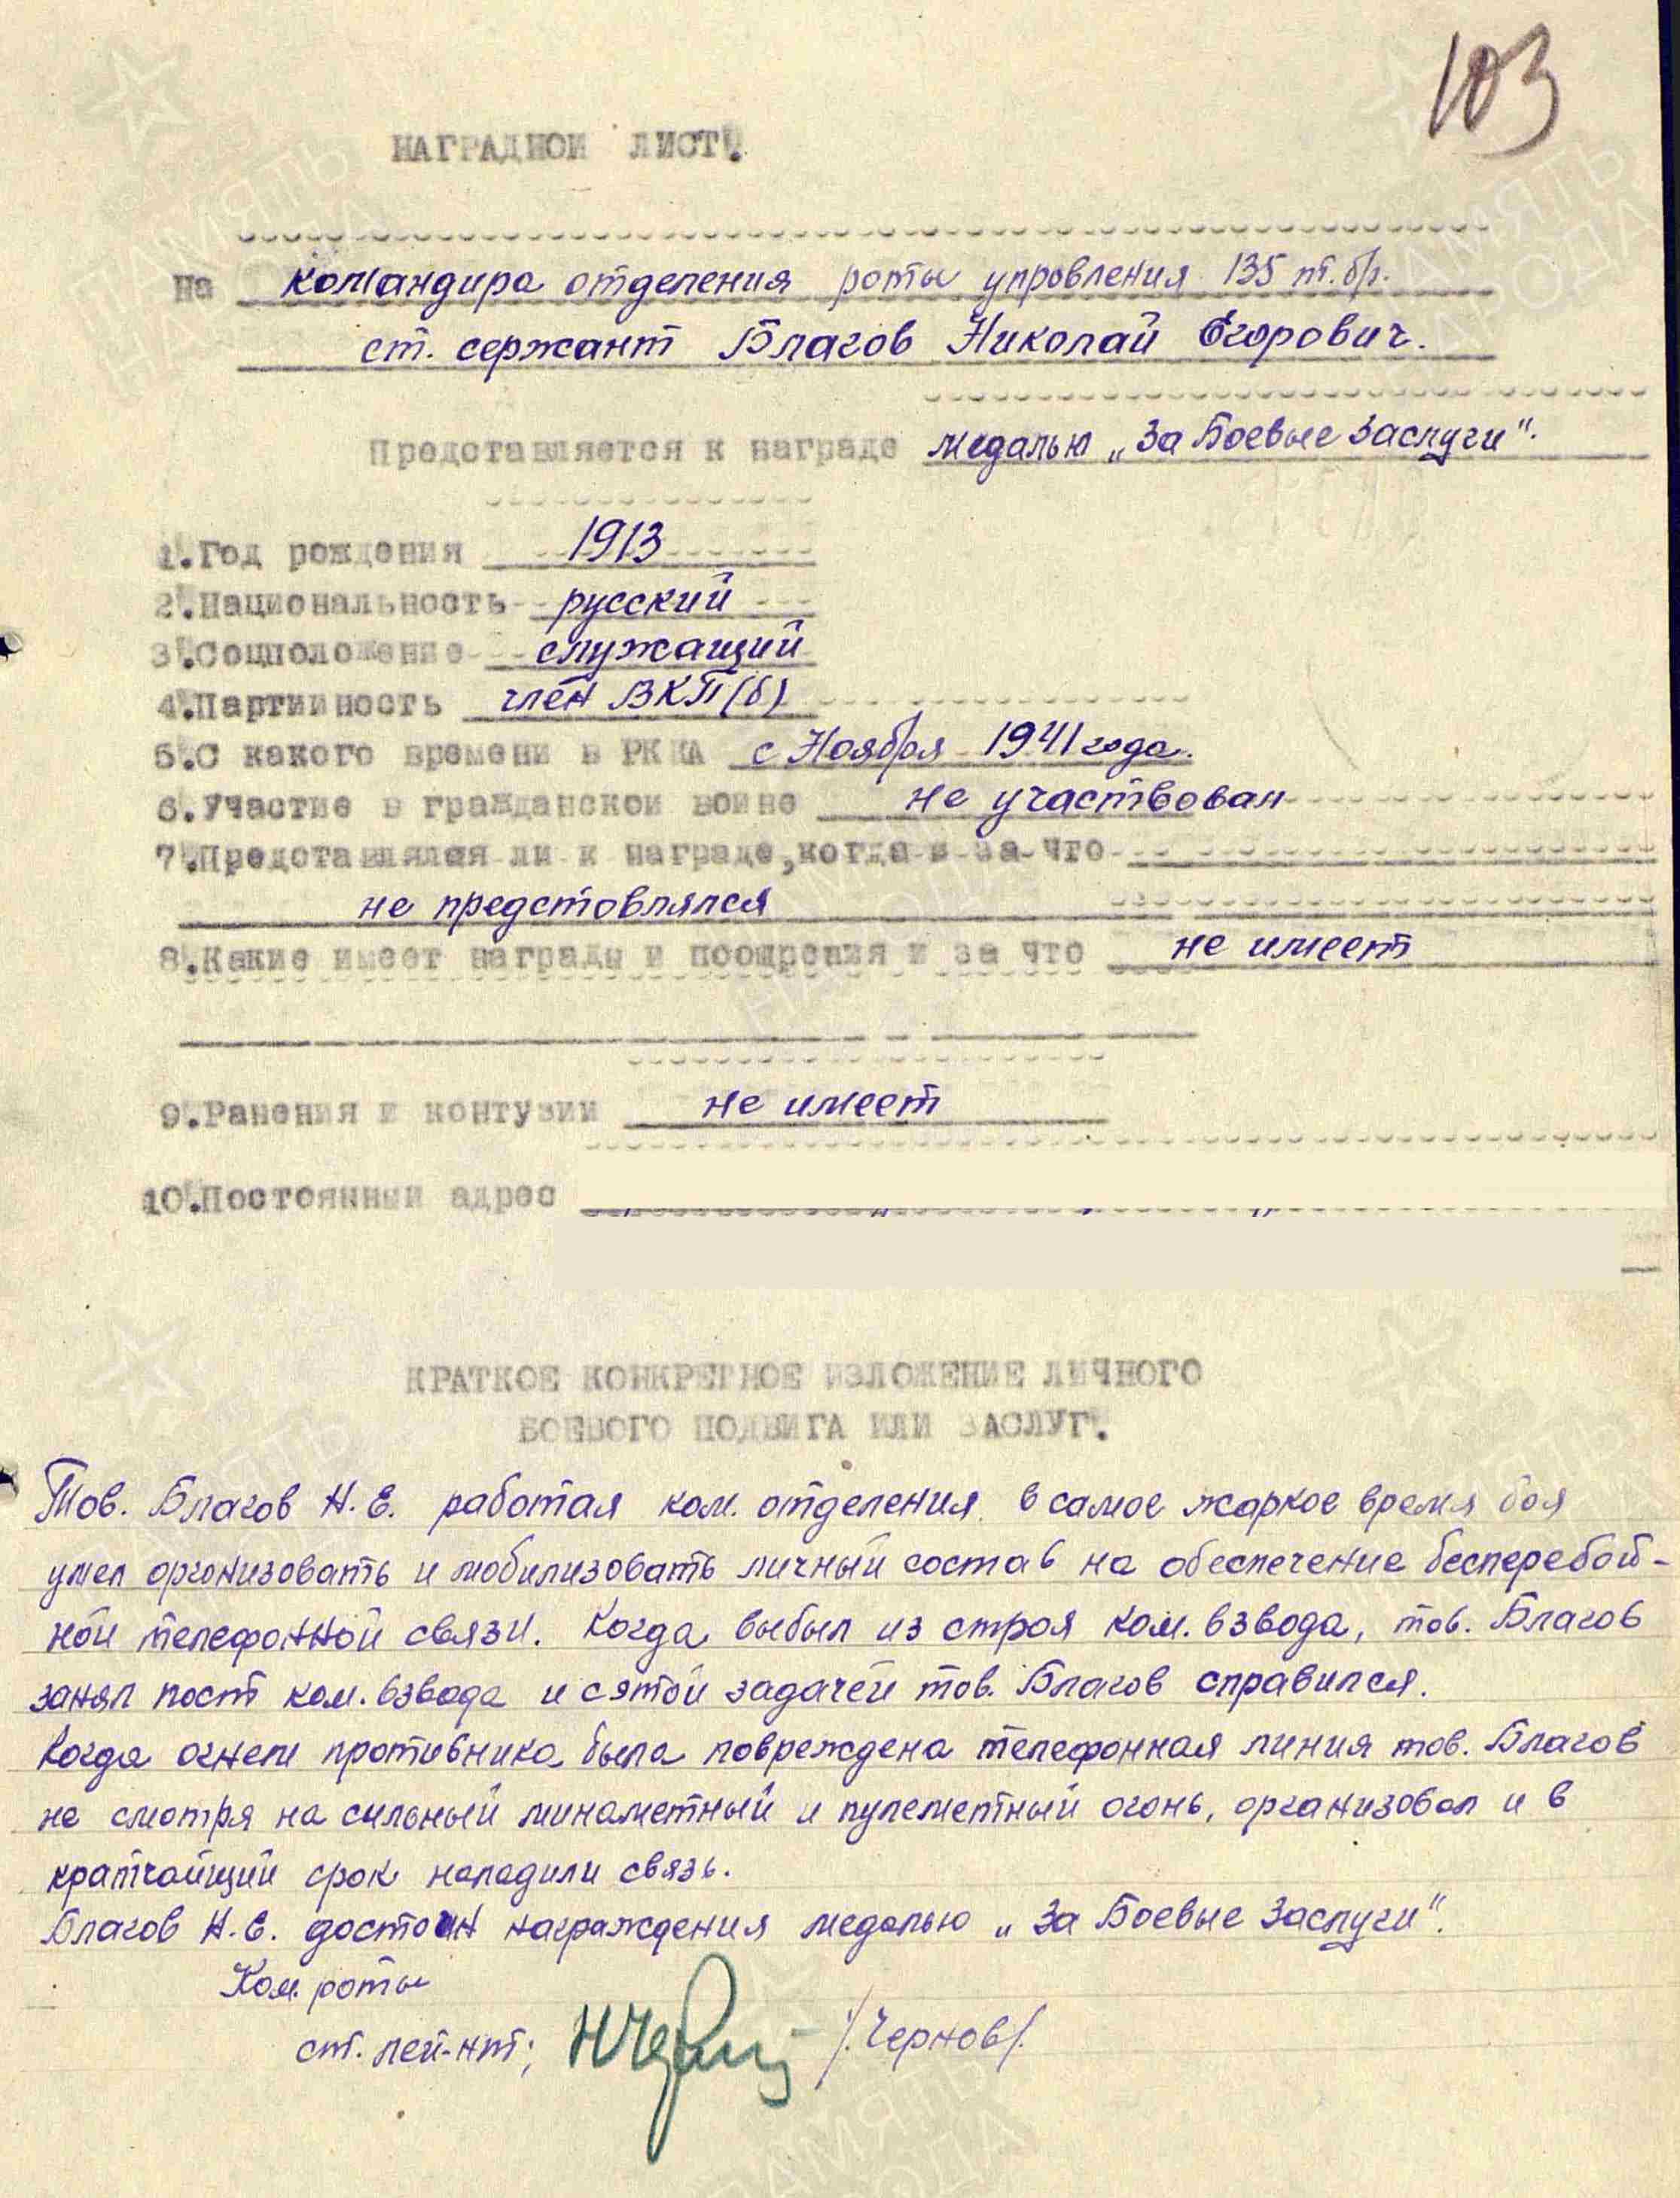 103
НАГРАДНОЙ ЛИСТ.
на командира отделения роты упровления 135 пт. бр.
ст. сержант Благов Николай Егорович.
Представляется к награде медалью „За Боевые Заслуги".
1. Год рождения 1913
2. Национальность русский
3. Соцположение служащий
4. Партийность член ВКП(б)
5. С какого времени в РККА с Ноября 1941 года.
6. Участие в гражданской войне не участвовал
7. Представлялся ли к награде, когда и за что
не предстовлялся
8. Какие имеет награды и поощрения и за что не имеет
9. Ранения и контузии не имеет
10. Постоянный адрес
КРАТКОЕ КОНКРЕТНОЕ ИЗЛОЖЕНИЕ ЛИЧНОГО
БОЕВОГО ПОДВИГА ИЛИ ЗАСЛУГ.
Тов. Благов Н. Е. работая ком. отделения в самое жаркое время боя
умел организовать и мобилизовать личный состав на обеспечение бесперебой-
ной телефонной связи. Когда выбыл из строя ком. взвода, тов. Благов
занял пост ком. взвода и сэтой задачей тов. Благов справился.
Когда огнем противника была повреждена телефонная линия тов. Благов
не смотря на сильный минаметный и пулеметный огонь, организовал и в
кратчайщий срок наладили связь.
Благов Н. Е. достоин награждения медалью „За Боевые Заслуги".
Ком. роты
ст. лей-нт; /Чернов/.
ПАМЯТЬ
НАРОДА